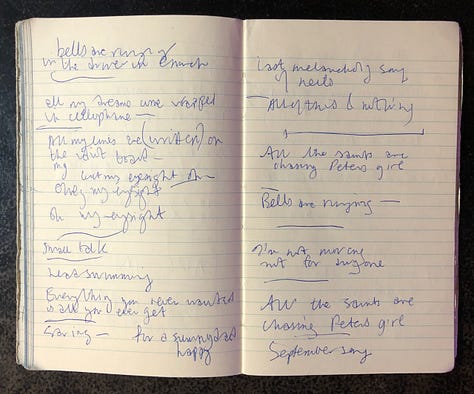 bells are ringing
in the drive in church
all my dreams were wrapped
in cellophane —
All my lines are (written) on
the
my
but my eyesight oh —
Obey my eyesight
Oh my eyesight
Small talk
Head swimming
Everything you never wanted
is all you ever get
Craving — for a sunny day
happy
Last melancholy say
hello
All of this & nothing
All the saints are
chasing Peters girl
Bells are ringing —
I'm not moving
not for anyone
All the saints are
chasing Peters girl
September song